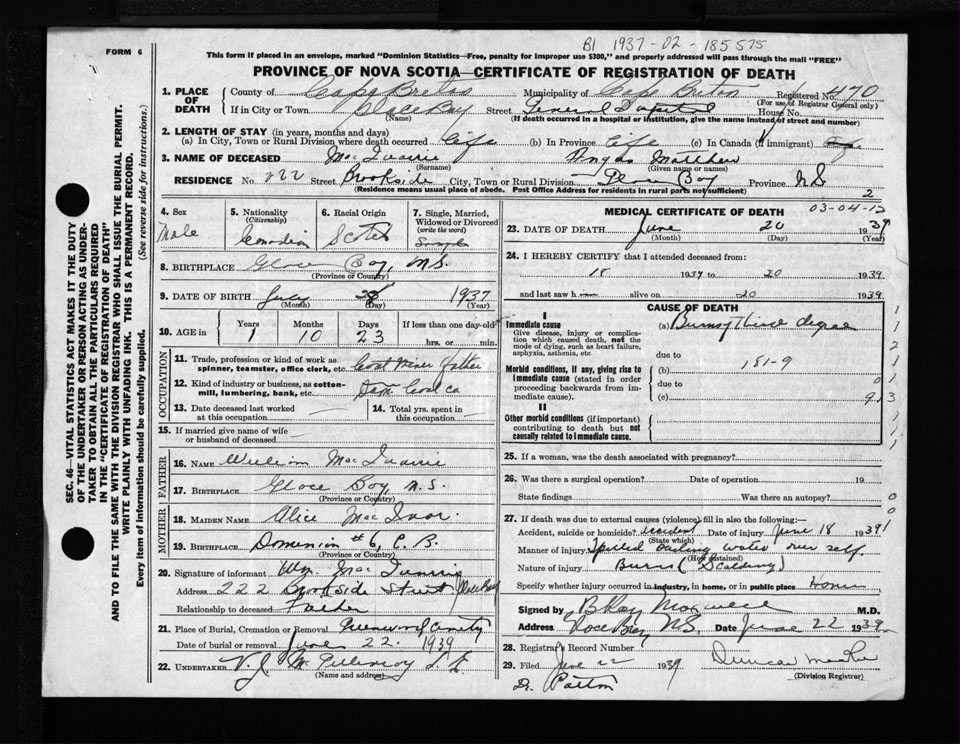 FORM 6
B1 1937-02-185575
This form if placed in an envelope, marked "Dominion Statistics—Free, penalty for improper use $300," and properly addressed will pass through the mail "FREE"
PROVINCE OF NOVA SCOTIA—CERTIFICATE OF REGISTRATION OF DEATH
SEC. 46—VITAL STATISTICS ACT MAKES IT THE DUTY
OF THE UNDERTAKER OR PERSON ACTING AS UNDER-
TAKER TO OBTAIN ALL THE PARTICULARS REQUIRED
IN THE "CERTIFICATE OF REGISTRATION OF DEATH"
AND TO FILE THE SAME WITH THE DIVISION REGISTRAR WHO SHALL ISSUE THE BURIAL PERMIT.
WRITE PLAINLY WITH UNFADING INK. THIS IS A PERMANENT RECORD.
Every item of information should be carefully supplied. (See reverse side for instructions.)
1. PLACE OF DEATH
County of Cape Breton Municipality of Cape Breton Registered No. 470
(For use of Registrar General only)
If in City or Town Glace Bay Street General Hospital House No.
(Name) (If death occurred in a hospital or institution, give the name instead of street and number)
2. LENGTH OF STAY (in years, months and days)
(a) In City, Town or Rural Division where death occurred Life (b) In Province Life (c) In Canada (if immigrant)
3. NAME OF DECEASED Mac Quarrie Angus Matthew
(Surname) (Given name or names)
RESIDENCE No. 222 Street Brookside City, Town or Rural Division Glace Bay Province N.S.
(Residence means usual place of abode. Post Office Address for residents in rural parts not sufficient)
2
4. Sex
Male
5. Nationality
(Citizenship)
Canadian
6. Racial Origin
Scotch
7. Single, Married, Widowed or Divorced
(write the word)
Single
8. BIRTHPLACE Glace Bay, N.S.
(Province or Country)
9. DATE OF BIRTH July 1937
(Month) (Day) (Year)
10. AGE in Years Months Days If less than one day old
1 10 23 hrs. or min.
11. Trade, profession or kind of work as
spinner, teamster, office clerk, etc. Coal Miner Father
12. Kind of industry or business, as cotton-
mill, lumbering, bank, etc. Dom Coal Co
13. Date deceased last worked
at this occupation
14. Total yrs. spent in
this occupation
15. If married give name of wife
or husband of deceased
FATHER
16. NAME William Mac Quarrie
17. BIRTHPLACE Glace Bay, N.S.
(Province or Country)
MOTHER
18. MAIDEN NAME Alice Mac Ivor
19. BIRTHPLACE Dominion #6, C.B.
(Province or Country)
20. Signature of informant Wm. Mac Quarrie
Address 222 Brookside Street Glace Bay
Relationship to deceased Father
21. Place of Burial, Cremation or Removal Greenwood Cemetery
Date of burial or removal June 22. 1939
22. UNDERTAKER V.J. McGillivray
(Name and address)
MEDICAL CERTIFICATE OF DEATH 03-04-12
23. DATE OF DEATH June 20 1939
(Month) (Day) (Year)
24. I HEREBY CERTIFY that I attended deceased from:
18 1939 to 20 1939
and last saw h alive on 20 1939
CAUSE OF DEATH
I
Immediate cause
Give disease, injury or complica-
tion which caused death, not the
mode of dying, such as heart failure,
asphyxia, asthenia, etc.
(a) Burns, Third degree
due to
Morbid conditions, if any, giving rise to
immediate cause (stated in order
proceeding backwards from im-
mediate cause).
(b) 181-9
due to
(c)
II
Other morbid conditions (if important)
contributing to death but not
causally related to immediate cause.
25. If a woman, was the death associated with pregnancy?
26. Was there a surgical operation? Date of operation 19
State findings Was there an autopsy?
27. If death was due to external causes (violence) fill in also the following:—
Accident, suicide or homicide? Accident Date of injury June 18 1939
(State which)
Manner of injury Spilled boiling water over self
(How sustained)
Nature of injury Burns (Scalding)
Specify whether injury occurred in industry, in home, or in public place Home
Signed by M.D.
Address Glace Bay N.S. Date June 22 1939
28. Registrar's Record Number
29. Filed June 22 1939 Duncan
(Division Registrar)
Dr. Patton